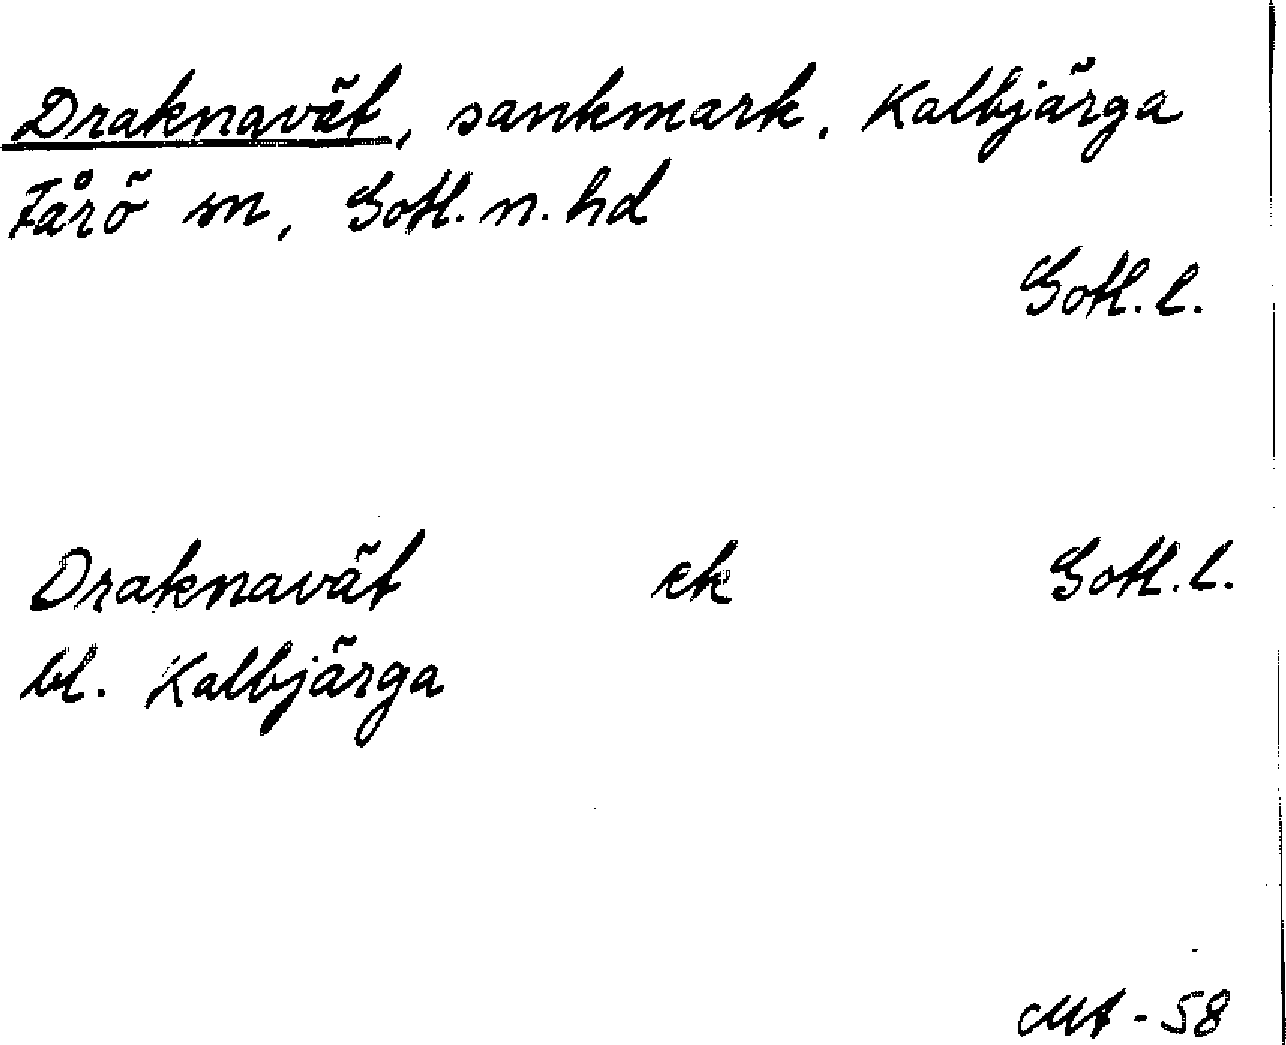 Draknavät, sankmark, Kalbjärga
Fårö sn, Gotl. n. hd
Gotl. l.
Draknavät ek Gotl. l.
bl. Kalbjärga
MA - 58